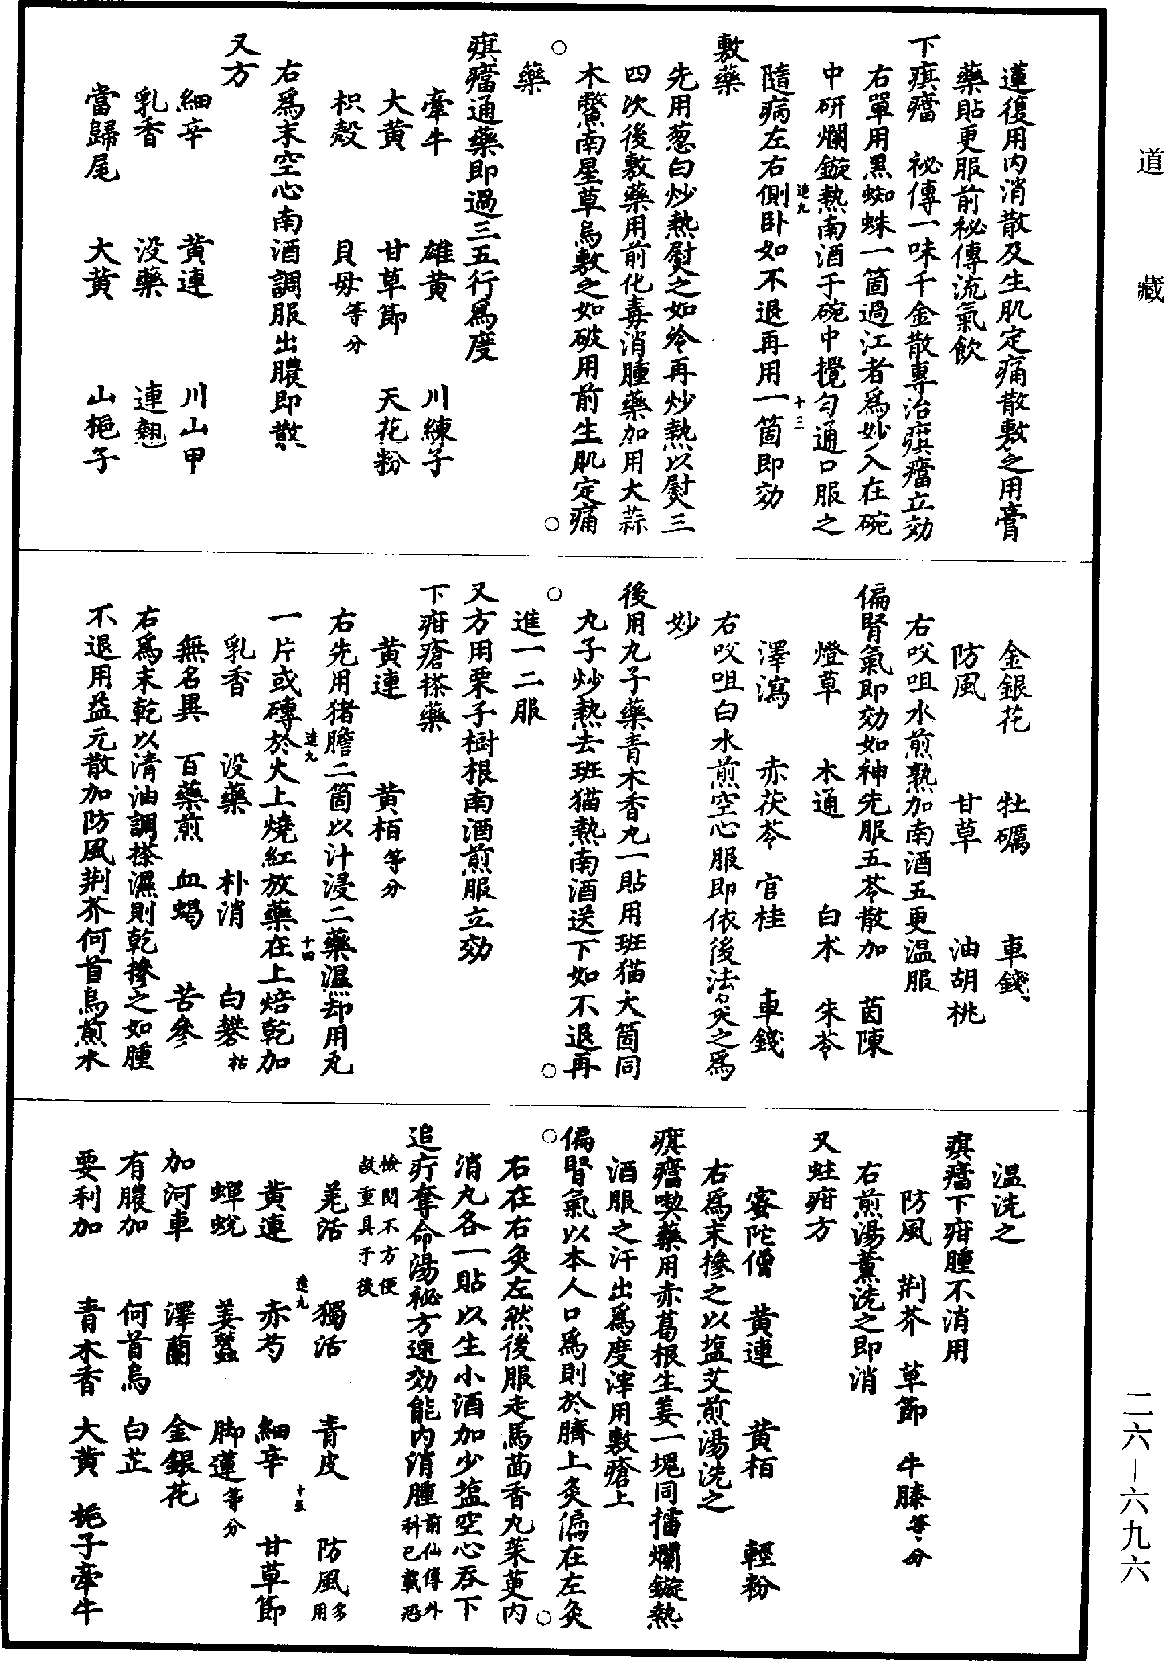 道藏
蓮復用内消散及生肌定痛散敷之用膏
藥貼更服前秘傳流氣飲
下㾰㿗　祕傳一味千金散專治㾰㿗立効
右單用黑蜘蛛一箇過江者爲妙入在碗
中研爛鏇熱南酒于碗中攪勻通口服之
隨病左右側卧如不退再用一箇即効
敷藥
先用葱白炒熱熨之如冷再炒熱以熨三
四次後敷藥用前化毒消腫藥加用大蒜
木鱉南星草烏敷之如破用前生肌定痛
藥
㾰㿗通藥即過三五行爲度
牽牛　雄黄　川練子
大黄　甘草節　天花粉
枳殼　貝母等分
右爲末空心南酒調服出膿即散
又方
細辛　黄連　川山甲
乳香　没藥　連翹
當歸尾　大黄　山梔子
金銀花　牡礪　車錢
防風　甘草　油胡桃
右㕮咀水煎熟加南酒五更温服
偏腎氣即効如神先服五苓散加　茵陳
燈草　木通　白术　朱苓
澤瀉　赤茯苓　官桂　車錢
右㕮咀白水煎空心服即依後法灸之爲
妙
後用九子藥青木香丸一貼用班猫大箇同
丸子炒熱去班猫熱南酒送下如不退再
進一二服
又方用栗子樹根南酒煎服立効
下疳瘡搽藥
黄連　黄栢等分
右先用猪膽二箇以汁浸二藥濕却用瓦
一片或磚於火上燒紅放藥在上焙乾加
乳香　没藥　朴消　白礬枯
無名異　百藥煎　血蝎　苦參
右爲末乾以清油調搽濕則乾摻之如腫
不退用益元散加防風荆芥何首烏煎水
温洗之
㾰㿗下疳腫不消用
防風　荆芥　草節　牛膝等分
右煎湯薰洗之即消
又蛀疳方
密陀僧　黄連　黄栢　輕粉
右爲末摻之以塩艾煎湯洗之
㾰㿗喫藥用赤葛根生姜一塊同擂爛鏇熱
酒服之汗出爲度滓用敷瘡上
偏腎氣以本人口爲則於臍上灸偏在左灸
右在右灸左然後服走馬茴香丸茱萸内
消丸各一貼以生小酒加少塩空心吞下
追疔奪命湯祕方速効能内消腫前仙傳外科已載恐
檢閱不方便故重具于後
羌活　獨活　青皮　防風多用
黄連　赤芍　細辛　甘草節
蟬蛻　姜蠶　脚蓮等分
加河車　澤蘭　金銀花
有膿加　何首烏　白芷
要利加　青木香　大黄　梔子牽牛
二六－六九六